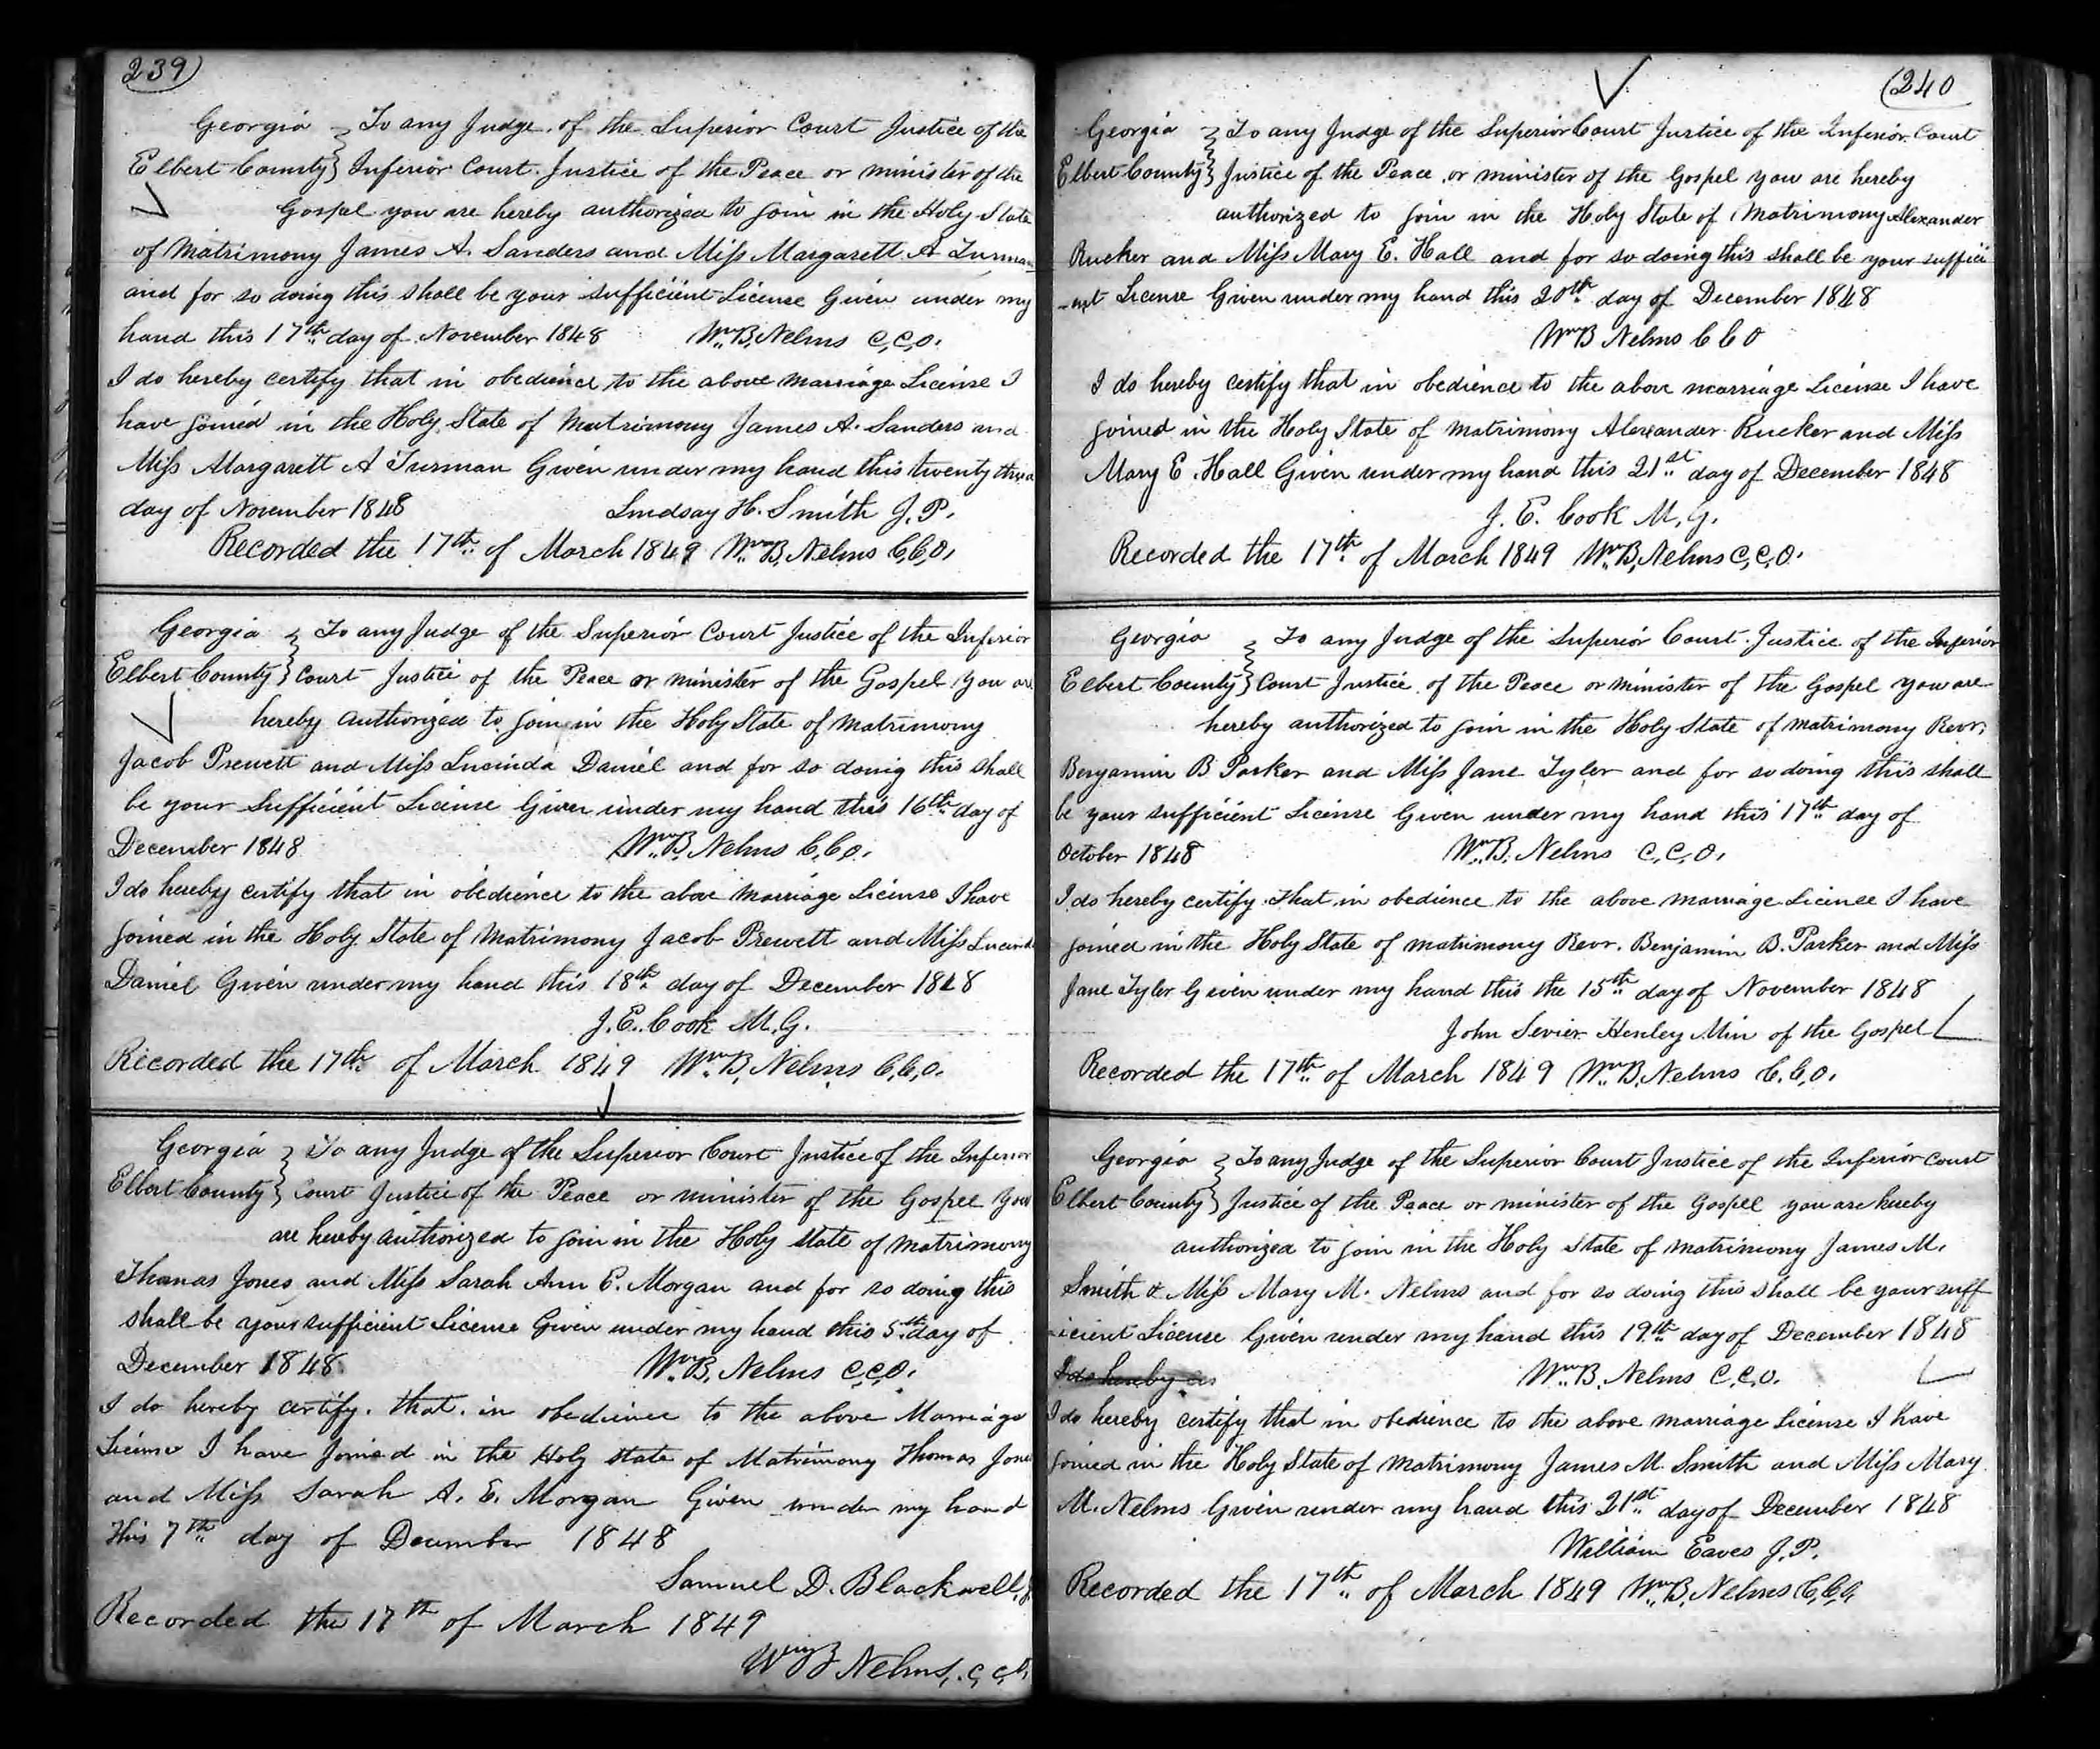 239
Georgia } To any Judge of the Superior Court Justice of the
Elbert County } Inferior Court Justice of the Peace or minister of the
Gospel you are hereby authorized to join in the Holy State
of Matrimony James A. Sanders and Miss Margarett A Turman
and for so doing this shall be your sufficient License Given under my
hand this 17th day of November 1848 Wm B. Nelms C,C,O,
I do hereby certify that in obedience to the above marriage License I
have joined in the Holy State of Matrimony James A. Sanders and
Miss Margarett A Turman Given under my hand this twenty third
day of November 1848 Lindsay H. Smith J. P.
Recorded the 17th of March 1849 Wm B, Nelms C,C,O,
Georgia } To any Judge of the Superior Court Justice of the Inferior
Elbert County } Court Justice of the Peace or minister of the Gospel you are
hereby authorized to join in the Holy State of Matrimony
Jacob Prewett and Miss Lucinda Daniel and for so doing this shall
be your sufficient License Given under my hand this 16th day of
December 1848 Wm B, Nelms C,C,O,
I do hereby certify that in obedience to the above marriage License I have
joined in the Holy State of Matrimony Jacob Prewett and Miss Lucinda
Daniel Given under my hand this 18th day of December 1848
J. E. Cook M. G.
Recorded the 17th of March 1849 Wm B, Nelms C,C,O,
Georgia } To any Judge of the Superior Court Justice of the Inferior
Elbert County } Court Justice of the Peace or minister of the Gospel you
are hereby authorized to join in the Holy state of Matrimony
Thomas Jones and Miss Sarah Ann E. Morgan and for so doing this
shall be your sufficient License Given under my hand this 5th day of
December 1848 Wm B, Nelms C,C,O,
I do hereby certify that in obedience to the above Marriage
License I have joined in the Holy state of Matrimony Thomas Jones
and Miss Sarah A. E. Morgan Given under my hand
this 7th day of December 1848
Samuel D. Blackwell,
Recorded the 17th of March 1849
Wm B Nelms, C, C, O,
240
Georgia } To any Judge of the Superior Court Justice of the Inferior Court
Elbert County } Justice of the Peace or minister of the Gospel you are hereby
authorized to join in the Holy State of Matrimony Alexander
Rucker and Miss Mary E. Hall and for so doing this shall be your suffici
-ent License Given under my hand this 20th day of December 1848
Wm B Nelms C C O
I do hereby certify that in obedience to the above marriage License I have
joined in the Holy State of Matrimony Alexander Rucker and Miss
Mary E. Hall Given under my hand this 21st day of December 1848
J. E. Cook M, G.
Recorded the 17th of March 1849 Wm B, Nelms C,C,O.
Georgia } To any Judge of the Superior Court Justice of the Inferior
Elbert County } Court Justice of the Peace or minister of the Gospel you are
hereby authorized to join in the Holy State of Matrimony Revr.
Benjamin B Parker and Miss Jane Tyler and for so doing this shall
be your sufficient License Given under my hand this 17th day of
October 1848 Wm B. Nelms C,C,O,
I do hereby certify that in obedience to the above marriage License I have
joined in the Holy State of matrimony Revr. Benjamin B. Parker and Miss
Jane Tyler Given under my hand this the 15th day of November 1848
John Sevier Henley Min of the Gospel
Recorded the 17th of March 1849 Wm B, Nelms C,C,O,
Georgia } To any Judge of the Superior Court Justice of the Inferior Court
Elbert County } Justice of the Peace or minister of the Gospel you are hereby
authorized to join in the Holy State of matrimony James M.
Smith & Miss Mary M. Nelms and for so doing this shall be your suff
-icient License Given under my hand this 19th day of December 1848
I do hereby Wm B. Nelms C,C,O.
I do hereby certify that in obedience to the above marriage License I have
joined in the Holy State of Matrimony James M. Smith and Miss Mary
M. Nelms Given under my hand this 21st day of December 1848
William Eaves J. P.
Recorded the 17th of March 1849 Wm B, Nelms C,C,O,